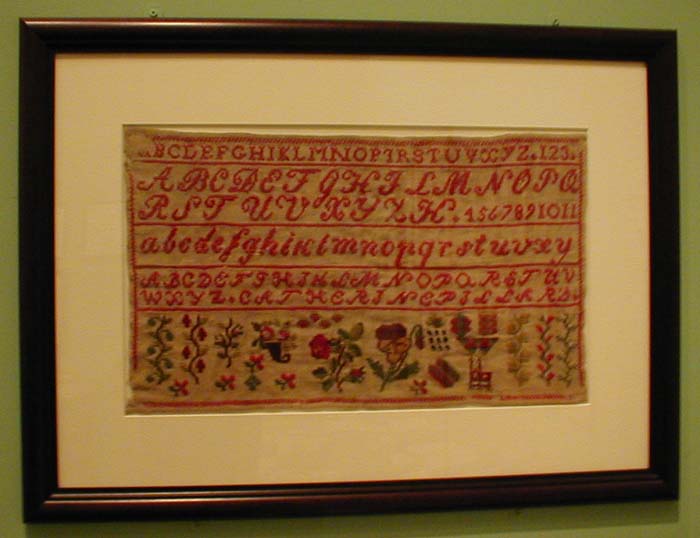 ABCLEFGHIKLMNOPRSTUVXYZ.123.
ABCDEFGHILMNOPQ
RSTUVXYZK.4567891011
abcdefghiklmnopqrstuvxy
ABCDEFGHIKLMNOPQRSTUV
WXYZ.CATHERINEPILLARD.